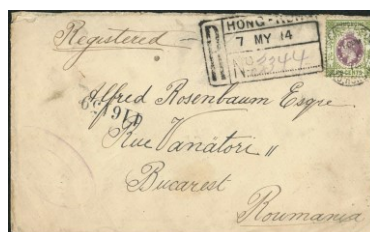 Registered
HONG-KONG
7 MY 14
No 5344
Alfred Rosenbaum Esqre
Rue Vanatore "
Bucarest
Roumania